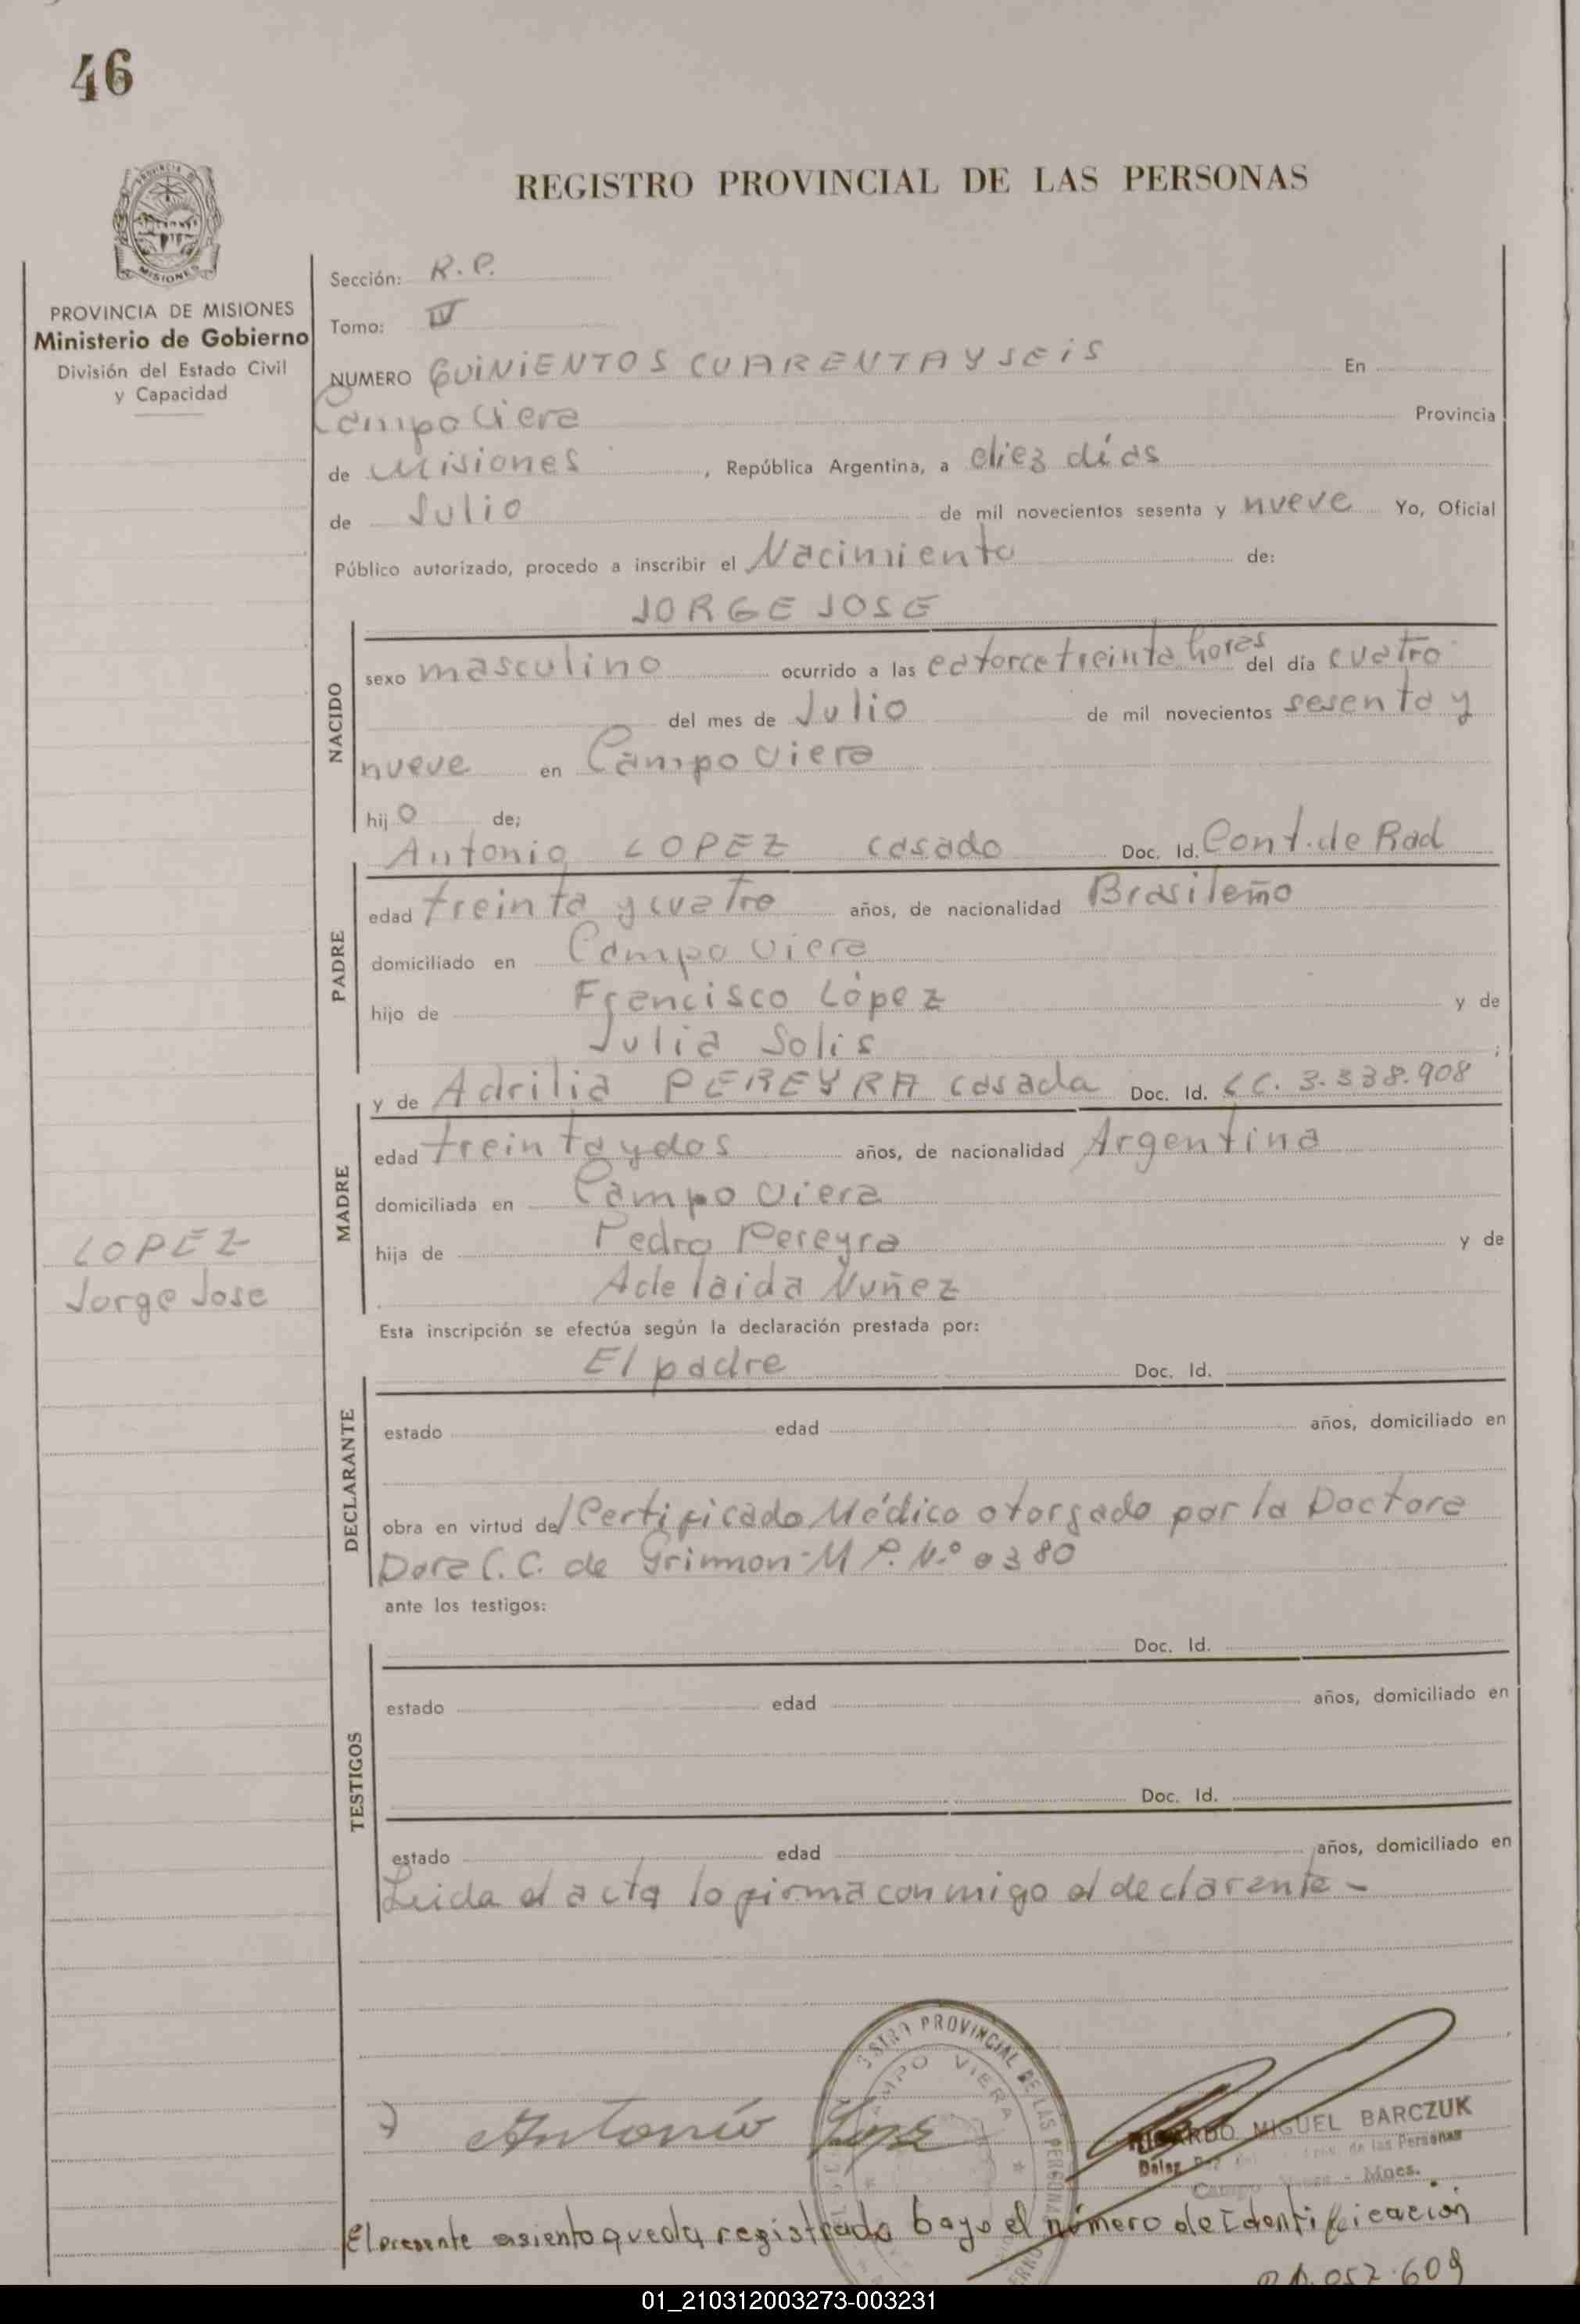 46
REGISTRO PROVINCIAL DE LAS PERSONAS
PROVINCIA DE MISIONES
MISIONES
PROVINCIA DE MISIONES
Ministerio de Gobierno
División del Estado Civil
y Capacidad
Sección: R.P.
Tomo: IV
NUMERO QUINIENTOS CUARENTA Y SEIS En
Campo Viera Provincia
de Misiones , República Argentina, a diez días
de Julio de mil novecientos sesenta y nueve Yo, Oficial
Público autorizado, procedo a inscribir el Nacimiento de:
JORGE JOSE
NACIDO
sexo masculino ocurrido a las catorce treinta horas del día cuatro
del mes de Julio de mil novecientos sesenta y
nueve en Campo Viera
hijo de;
Antonio LOPEZ casado Doc. Id. Cont. de Rad
PADRE
edad treinta y cuatro años, de nacionalidad Brasileño
domiciliado en Campo Viera
hijo de Francisco López y de
Julia Solis ;
y de Adrilia PEREYRA casada Doc. Id. LC. 3.338.908
MADRE
edad treinta y dos años, de nacionalidad Argentina
domiciliada en Campo Viera
hija de Pedro Pereyra y de
Adelaida Nuñez
LOPEZ
Jorge Jose
Esta inscripción se efectúa según la declaración prestada por:
El padre Doc. Id.
DECLARANTE
estado edad años, domiciliado en
obra en virtud del Certificado Médico otorgado por la Doctora
Dora C. C. de Grimon - M P. N.º 0380
ante los testigos:
Doc. Id.
TESTIGOS
estado edad años, domiciliado en
Doc. Id.
estado edad años, domiciliado en
Leida el acta lo firma conmigo el declarante -
Antonio Lopez
PROVINCIAL DE LAS PERSONAS
CAMPO VIERA
RICARDO MIGUEL BARCZUK
de las Personas
Campo Viera - Mnes.
El presente asiento queda registrado bajo el número de Identificación
052.609
01_210312003273-003231